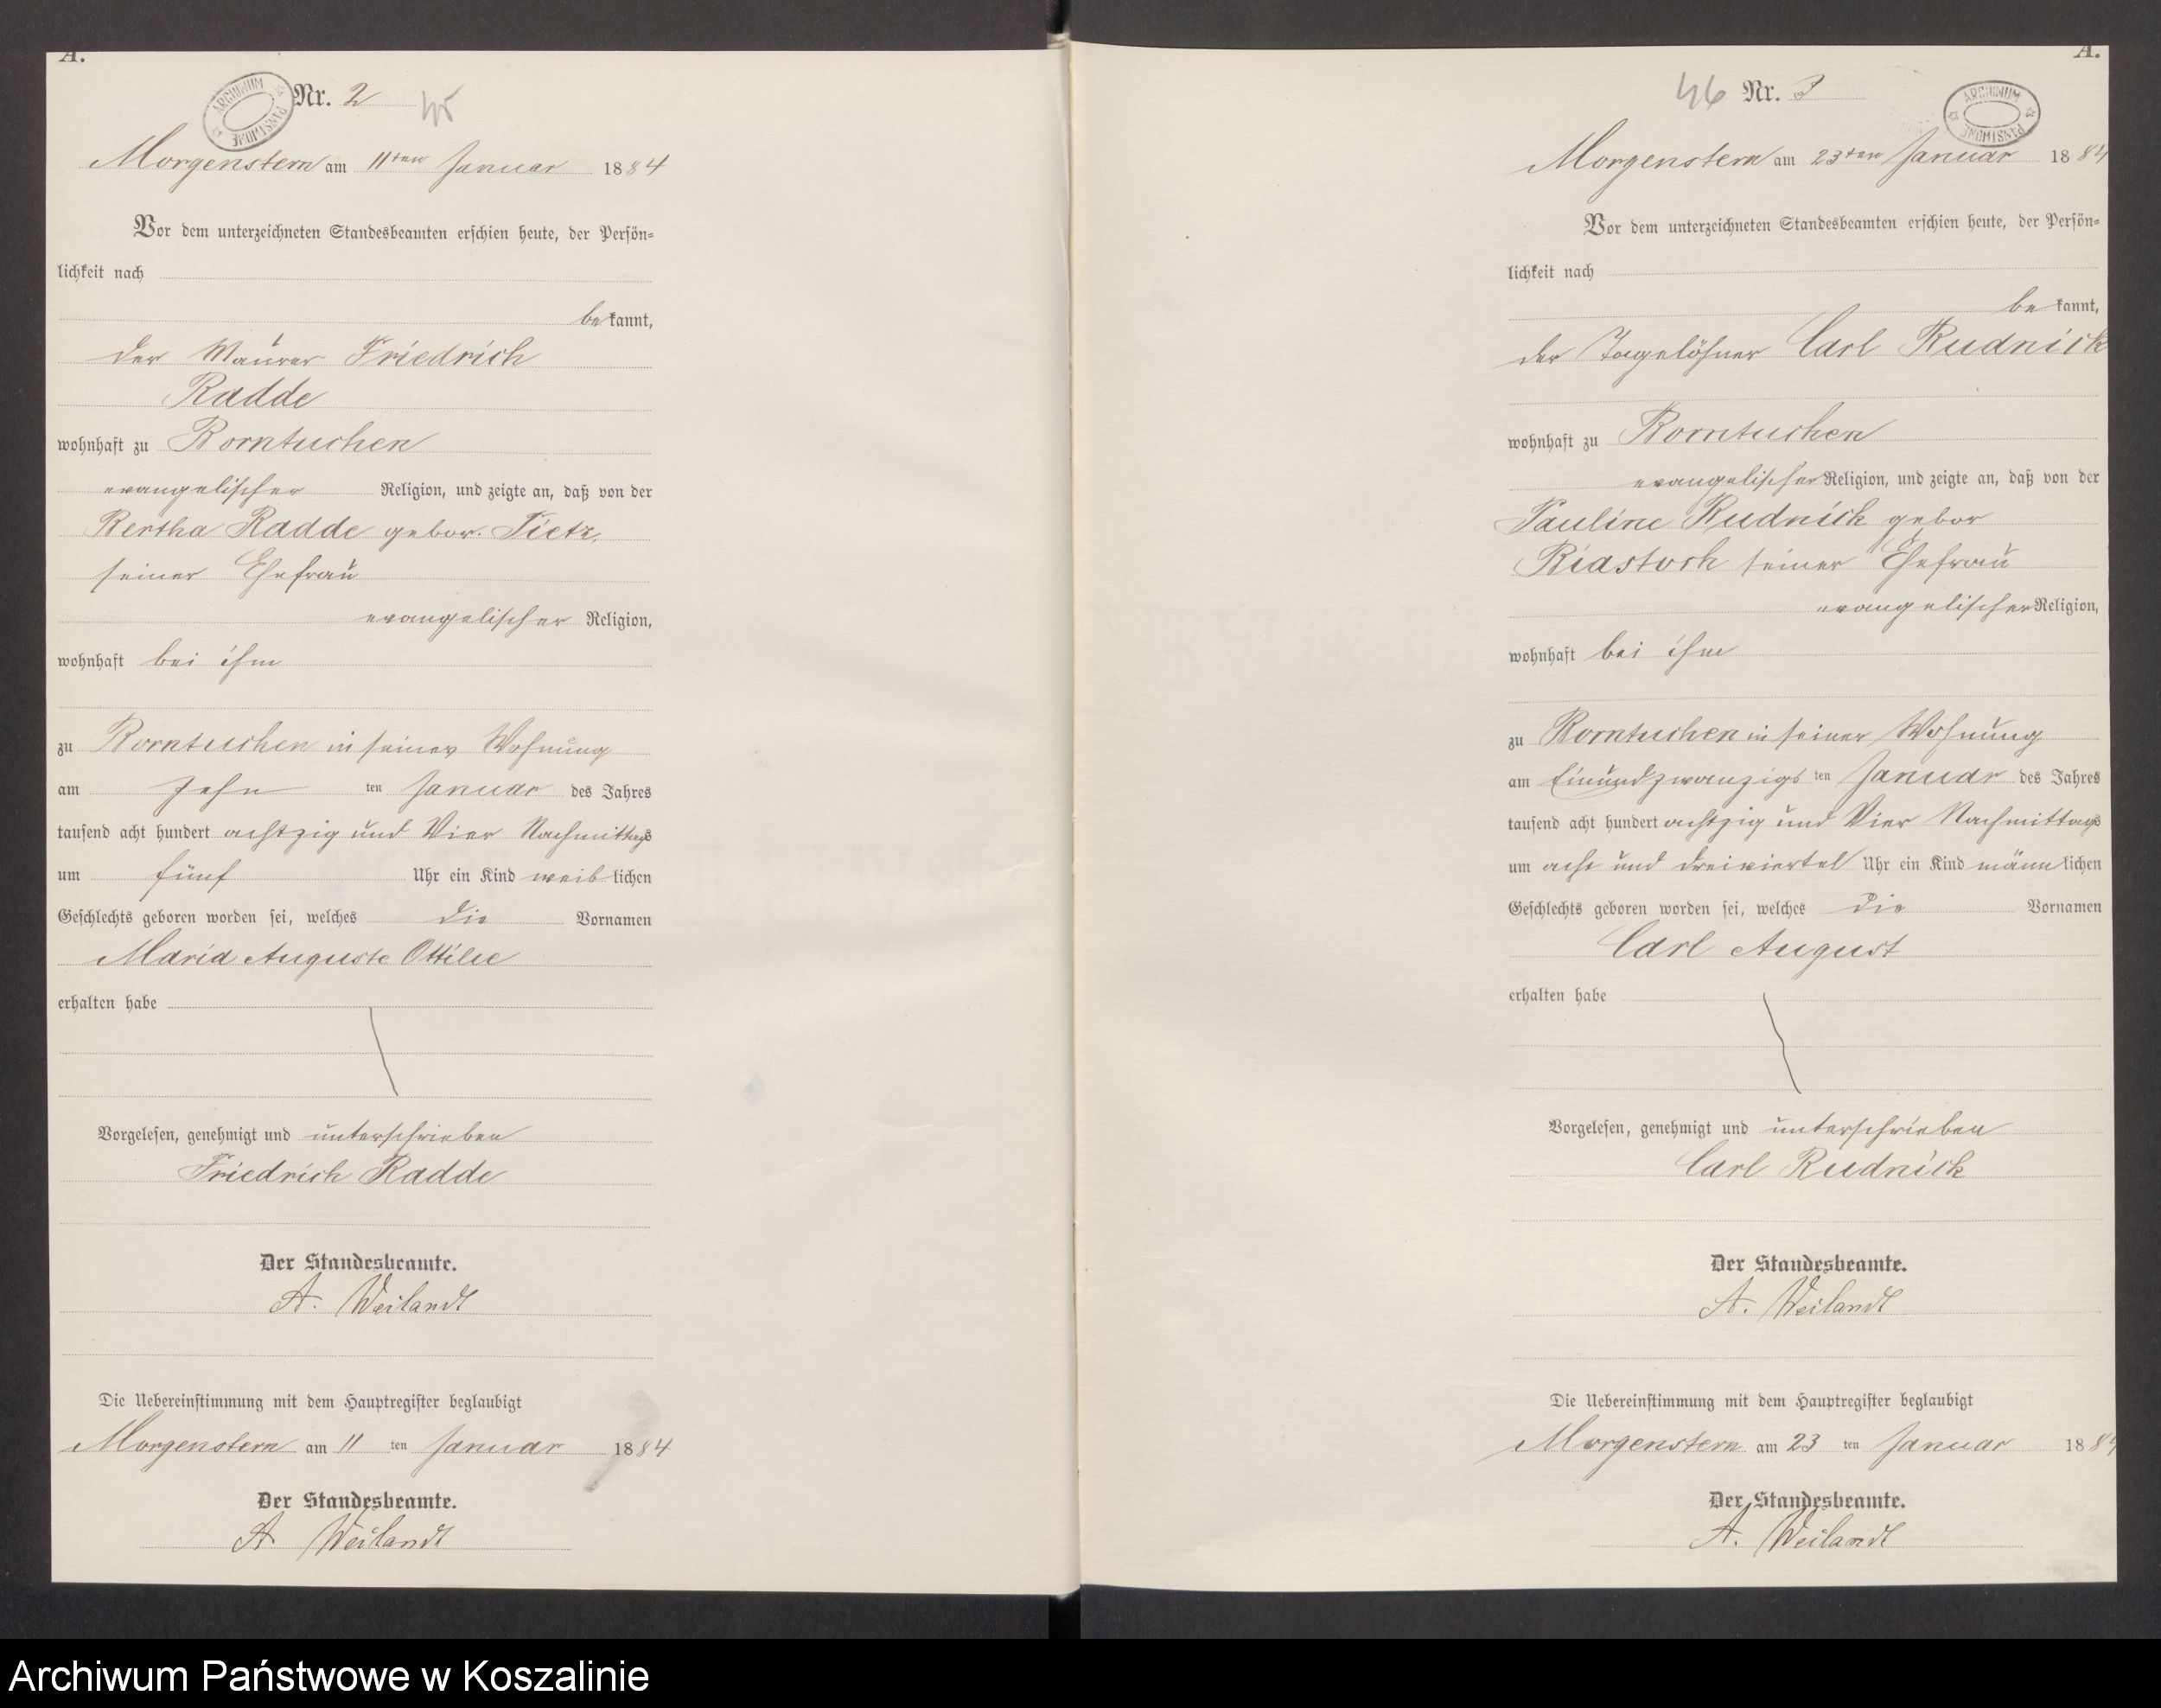 A.
Nr. 2 45
ARCHIWUM PAŃSTWOWE
Morgenstern am 11ten Januar 1884
Vor dem unterzeichneten Standesbeamten erschien heute, der Persön-
lichkeit nach
bekannt,
der Maurer Friedrich
Radde
wohnhaft zu Borntuchen
evangelischer Religion, und zeigte an, daß von der
Bertha Radde gebor. Tietz,
seiner Ehefrau
evangelischer Religion,
wohnhaft bei ihm
zu Borntuchen in seiner Wohnung
am zehn ten Januar des Jahres
tausend acht hundert achtzig und Vier Nachmittags
um fünf Uhr ein Kind weiblichen
Geschlechts geboren worden sei, welches die Vornamen
Maria Auguste Ottilie
erhalten habe
Vorgelesen, genehmigt und unterschrieben
Friedrich Radde
Der Standesbeamte.
A. Weilandt
Die Uebereinstimmung mit dem Hauptregister beglaubigt
Morgenstern am 11 ten Januar 1884
Der Standesbeamte.
A. Weilandt
A.
46 Nr. 3
ARCHIWUM PAŃSTWOWE
Morgenstern am 23ten Januar 1884
Vor dem unterzeichneten Standesbeamten erschien heute, der Persön-
lichkeit nach
bekannt,
der Tagelöhner Carl Rudnick
wohnhaft zu Borntuchen
evangelischer Religion, und zeigte an, daß von der
Pauline Rudnick gebor
seiner Ehefrau
evangelischer Religion,
wohnhaft bei ihm
zu Borntuchen in seiner Wohnung
am Einundzwanzigs ten Januar des Jahres
tausend acht hundert achtzig und Vier Nachmittags
um acht und dreiviertel Uhr ein Kind männlichen
Geschlechts geboren worden sei, welches die Vornamen
Carl August
erhalten habe
Vorgelesen, genehmigt und unterschrieben
Carl Rudnick
Der Standesbeamte.
A. Weilandt
Die Uebereinstimmung mit dem Hauptregister beglaubigt
Morgenstern am 23 ten Januar 1884
Der Standesbeamte.
A. Weilandt
Archiwum Państwowe w Koszalinie